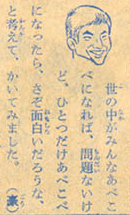 世の中がみんなあべこ
べになれば、問題ないけ
ど、ひとつだけあべこべ
になったら、さぞ面白いだろうな、
と考えて、かいてみました。(豪)